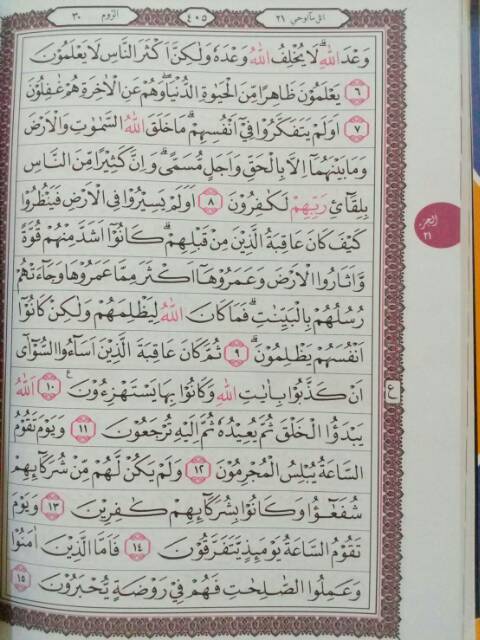 اتل ما أوحي ٢١
٤٠٥
الروم ٣٠
وَعْدَ اللّٰهِ ۗلَا يُخْلِفُ اللّٰهُ وَعْدَهٗ وَلٰكِنَّ اَكْثَرَ النَّاسِ لَا يَعْلَمُوْنَ
٦ يَعْلَمُوْنَ ظَاهِرًا مِّنَ الْحَيٰوةِ الدُّنْيَاۖ وَهُمْ عَنِ الْاٰخِرَةِ هُمْ غٰفِلُوْنَ
٧ اَوَلَمْ يَتَفَكَّرُوْا فِيْٓ اَنْفُسِهِمْ ۗ مَا خَلَقَ اللّٰهُ السَّمٰوٰتِ وَالْاَرْضَ
وَمَا بَيْنَهُمَآ اِلَّا بِالْحَقِّ وَاَجَلٍ مُّسَمًّىۗ وَاِنَّ كَثِيْرًا مِّنَ النَّاسِ
بِلِقَاۤئِ رَبِّهِمْ لَكٰفِرُوْنَ ٨ اَوَلَمْ يَسِيْرُوْا فِى الْاَرْضِ فَيَنْظُرُوْا
كَيْفَ كَانَ عَاقِبَةُ الَّذِيْنَ مِنْ قَبْلِهِمْۗ كَانُوْٓا اَشَدَّ مِنْهُمْ قُوَّةً
وَّاَثَارُوا الْاَرْضَ وَعَمَرُوْهَآ اَكْثَرَ مِمَّا عَمَرُوْهَا وَجَاۤءَتْهُمْ
رُسُلُهُمْ بِالْبَيِّنٰتِۗ فَمَا كَانَ اللّٰهُ لِيَظْلِمَهُمْ وَلٰكِنْ كَانُوْٓا
اَنْفُسَهُمْ يَظْلِمُوْنَۗ ٩ ثُمَّ كَانَ عَاقِبَةَ الَّذِيْنَ اَسَاۤءُوا السُّوْۤآٰى
اَنْ كَذَّبُوْا بِاٰيٰتِ اللّٰهِ وَكَانُوْا بِهَا يَسْتَهْزِءُوْنَ ࣖ ١٠ اَللّٰهُ
يَبْدَؤُا الْخَلْقَ ثُمَّ يُعِيْدُهٗ ثُمَّ اِلَيْهِ تُرْجَعُوْنَ ١١ وَيَوْمَ تَقُوْمُ
السَّاعَةُ يُبْلِسُ الْمُجْرِمُوْنَ ١٢ وَلَمْ يَكُنْ لَّهُمْ مِّنْ شُرَكَاۤىِٕهِمْ
شُفَعٰۤؤُا وَكَانُوْا بِشُرَكَاۤىِٕهِمْ كٰفِرِيْنَ ١٣ وَيَوْمَ
تَقُوْمُ السَّاعَةُ يَوْمَىِٕذٍ يَّتَفَرَّقُوْنَ ١٤ فَاَمَّا الَّذِيْنَ اٰمَنُوْا
وَعَمِلُوا الصّٰلِحٰتِ فَهُمْ فِيْ رَوْضَةٍ يُّحْبَرُوْنَ ١٥
الجزء
٢١
ع